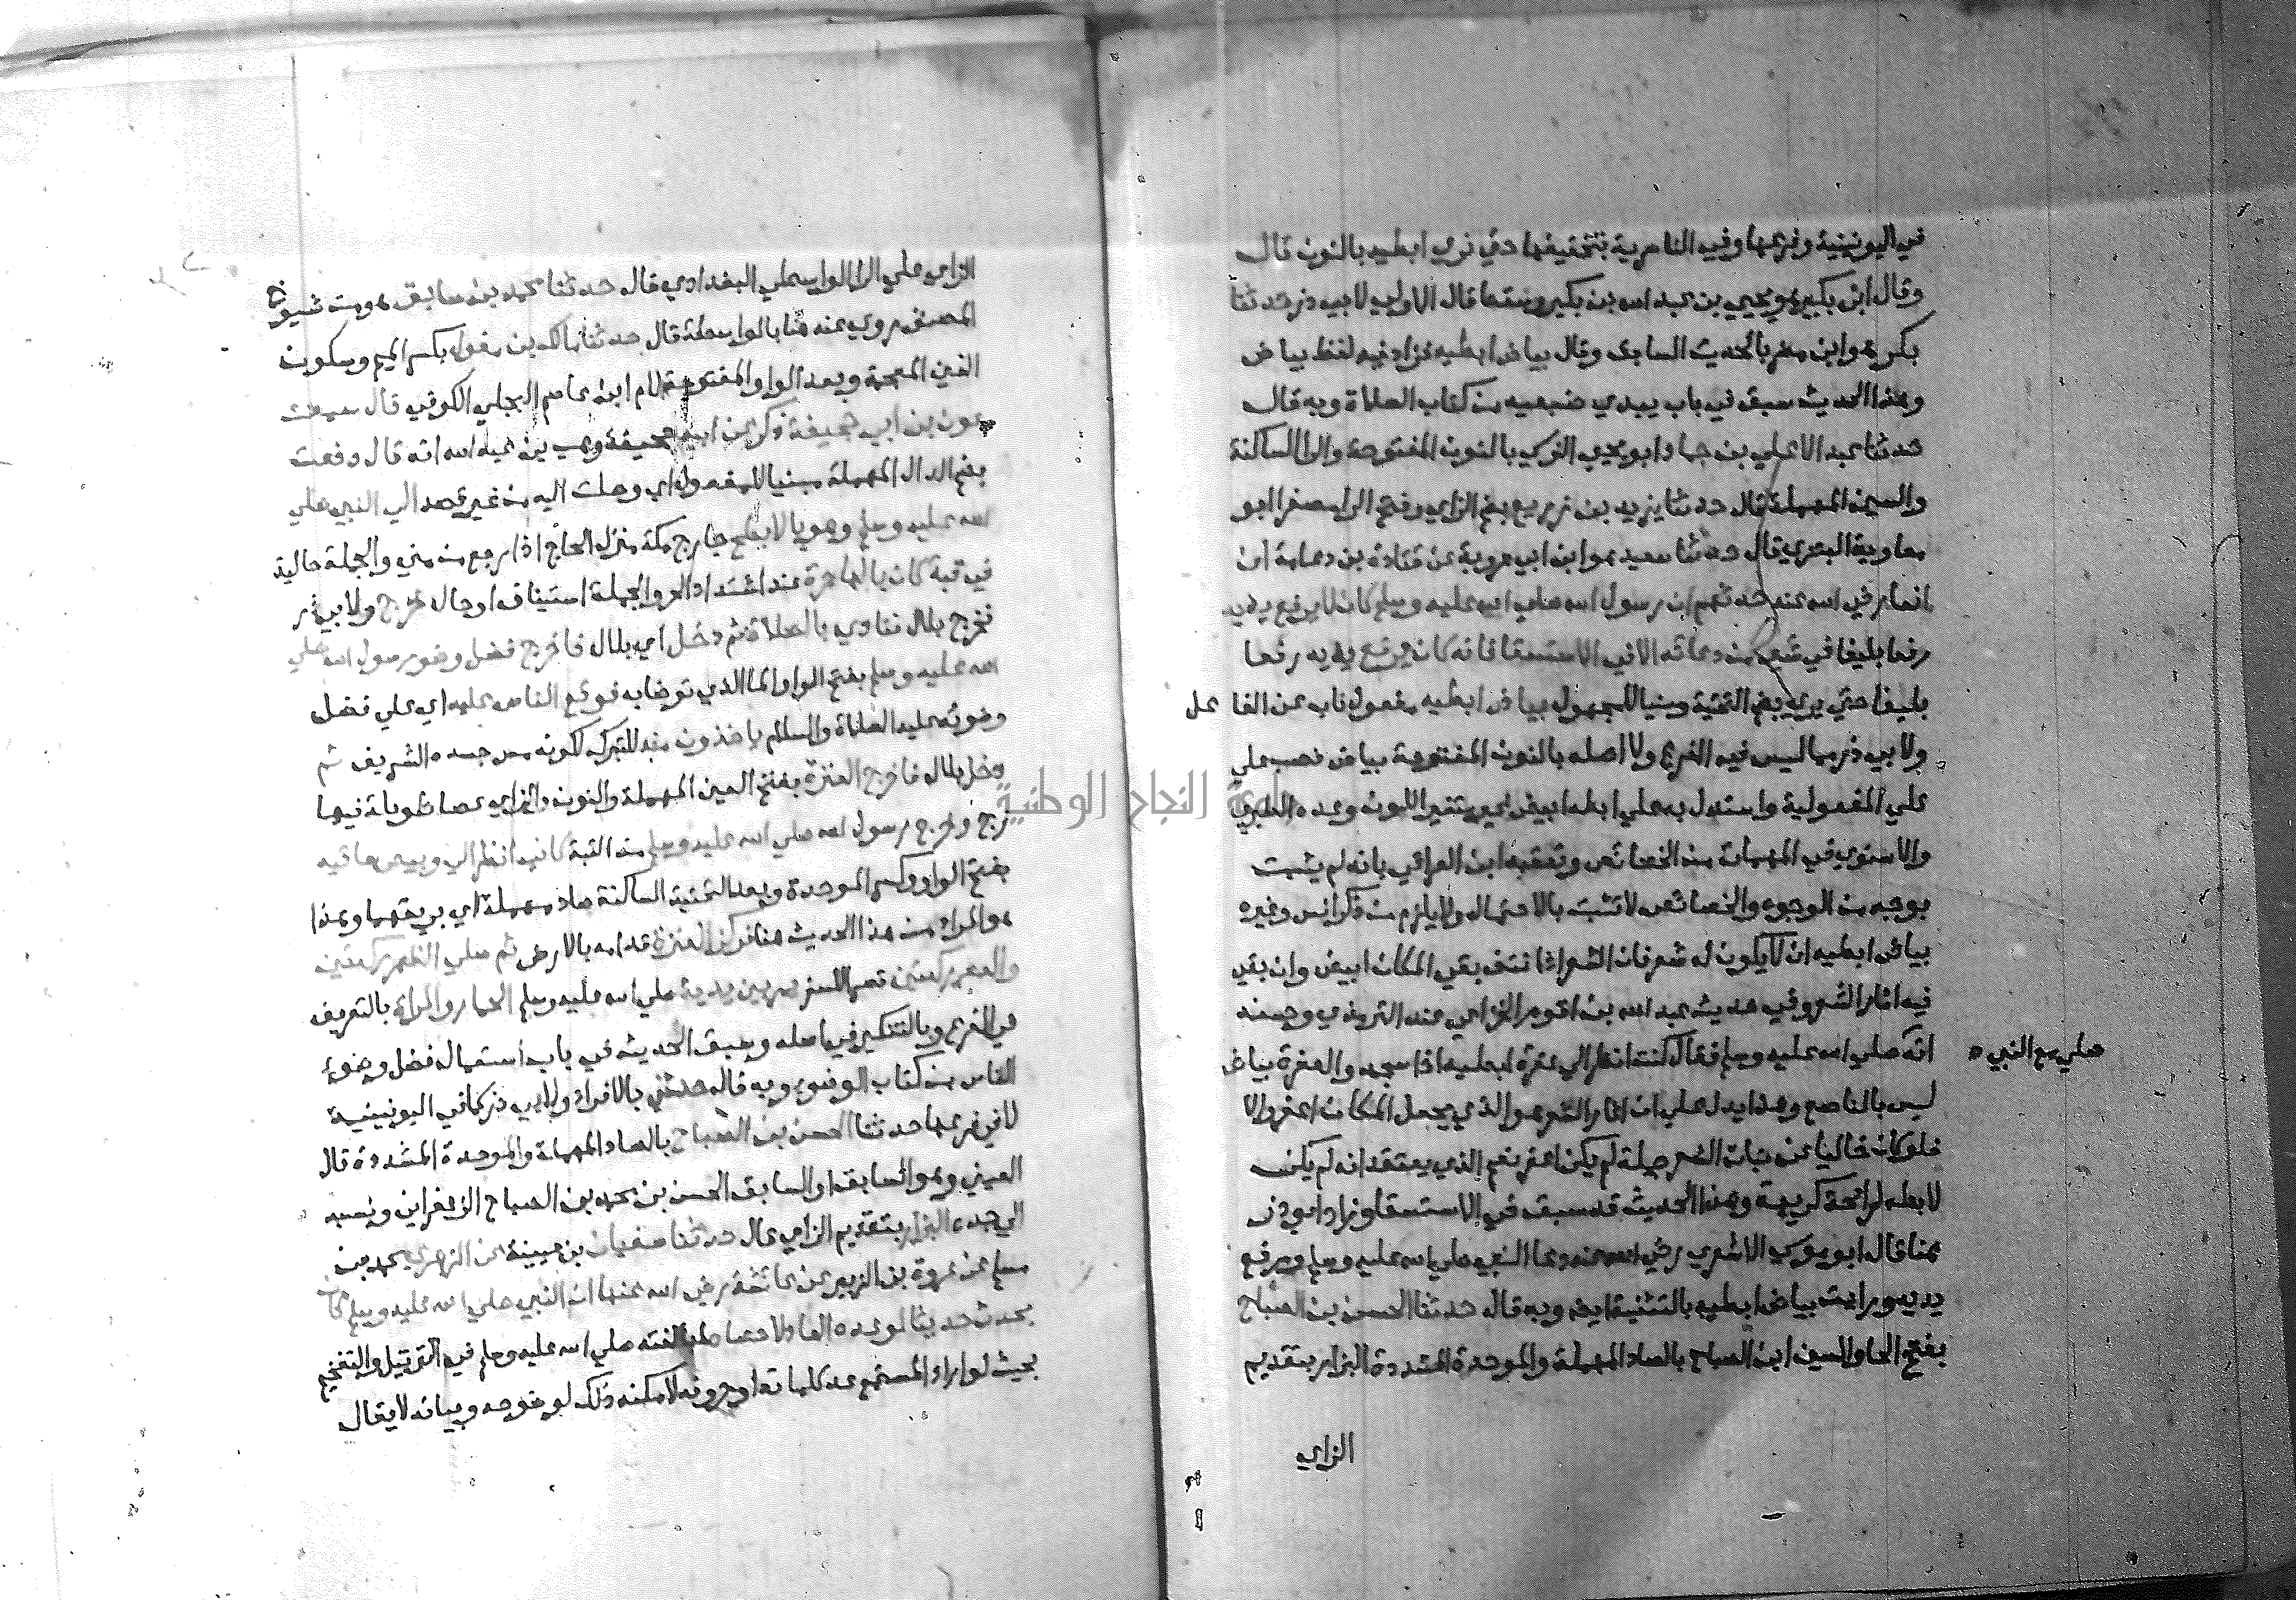 في اليونينية وفرعها وفي الناصرية بتخفيفها حتي نري ابطيه بالنون قال
وقال ابن بكير هو يحيي بن عبد الله بن بكير وسقط قال الاولي لابي ذر حدثنا
بكر هو ابن مضر بالحديث السابق وقال بياض ابطيه فزاد فيه لفظ بياض
وهذا الحديث سبق في باب يبدي ضبعيه من كتاب الصلاة وبه قال
حدثنا عبد الاعلي بن حماد ابو يحيي النرسي بالنون المفتوحة والرا الساكنة
والسين المهملة قال حدثنا يزيد بن زريع بضم الزاي وفتح الرا مصغرا ابو
معاوية البصري قال حدثنا سعيد هو ابن ابي عروبة عن قتادة بن دعامة ان
انسا رضي الله عنه حدثهم ان رسول الله صلي الله عليه وسلم كان لا يرفع يديه
رفعا بليغا في شي من دعائه الا في الاستسقا فانه كان يرفع يديه رفعا
بليغا حتي يري بضم التحتية مبنيا للمجهول بياض ابطيه مفعول ناب عن الفاعل
ولابي ذر مما ليس في الفرع ولا اصله بالنون المفتوحة بياض نصب علي
علي المفعولية واستدل به علي ابطه ابيض غير متغير اللون وعده الطبري
والاسنوي في المهمات من الخصائص وتعقبه ابن العراقي بانه لم يثبت
بوجه من الوجوه والخصائص لا تثبت بالاحتمال ولا يلزم من ذكر انس وغيره
بياض ابطيه ان لا يكون له شعر فان الشعر اذا نتف بقي المكان ابيض وان بقي
فيه اثار الشعر وفي حديث عبد الله بن اقرم الخزاعي عند الترمذي وحسنه
انه صلي الله عليه وسلم فقال كنت انظر الي عفرة ابطيه اذا سجد والعفرة بياض
صلي مع النبي
ليس بالناصع وهذا يدل علي ان اثار الشعر هو الذي يجعل المكان اعفر والا
فلو كان خاليا عن نبات الشعر جملة لم يكن اعفر نعم الذي يعتقد انه لم يكن
لابطه رائحة كريهة وهذا الحديث قد سبق في الاستسقا وزاد ابو ذر
هنا قال ابو موسي الاشعري رضي الله عنه دعا النبي صلي الله عليه وسلم ورفع
يديه ورايت بياض ابطيه بالتثنية ايضا وبه قال حدثنا الحسن بن الصباح
بفتح الحا والسين ابن الصباح بالصاد المهملة والموحدة المشددة البزار بتقديم
الزاي
الزاي علي الرا الواسطي البغدادي قال حدثنا محمد بن سابق هو من شيوخ
المصنف روي عنه هنا بالواسطة قال حدثنا مالك بن مغول بكسر الميم وسكون
الغين المعجمة وبعد الواو المفتوحة لام ابن عاصم البجلي الكوفي قال سمعت
عون بن ابي جحيفة ذكر عن ابيه جحيفة وهب بن عبد الله انه قال دفعت
بضم الدال المهملة مبنيا للمفعول اي وصلت اليه من غير قصد الي النبي صلي
الله عليه وسلم وهو بالابطح خارج مكة منزل الحاج اذا رجع من مني والجملة حالية
في قبة كان بالهاجرة عند اشتداد الحر والجملة استيناف او حال خرج ولابي ذر
فخرج بلال فنادي بالصلاة ثم دخل اي بلال فاخرج فضل وضو رسول الله صلي
الله عليه وسلم بفتح الواو الما الذي توضا به فوقع الناس عليه اي علي فضل
وضوئه عليه الصلاة والسلام ياخذون منه للتبرك لكونه مس جسده الشريف ثم
دخل بلال فاخرج العنزة بفتح العين المهملة والنون والزاي عصا طويلة فيها
زج وخرج رسول الله صلي الله عليه وسلم من القبة كاني انظر الي وبيص ساقيه
بفتح الواو وكسر الموحدة وبعد التحتية الساكنة صاد مهملة اي بريقهما وهذا
هو المراد من هذا الحديث هنا فركز العنزة قدامه بالارض ثم صلي الظهر ركعتين
والعصر ركعتين قصرا للسفر يمر بين يديه صلي الله عليه وسلم الحمار والمراة بالتعريف
في الفرع وبالتنكير في اصله وسبق الحديث في باب استعمال فضل وضوء
الناس من كتاب الوضوء وبه قال حدثني بالافراد ولابي ذر كما في اليونينية
لا في فرعها حدثنا الحسن بن الصباح بالصاد المهملة والموحدة المشددة قال
العيني وهو السابق او السابق الحسن بن محمد بن الصباح الزعفراني ونسبه
الي جده البزار بتقديم الزاي قال حدثنا سفيان بن عيينة عن الزهري محمد بن
مسلم عن عروة بن الزبير عن عائشة رضي الله عنها ان النبي صلي الله عليه وسلم كان
يحدث حديثا لو عده العاد لاحصاه لمبالغته صلي الله عليه وسلم في الترتيل والتفخيم
بحيث لو اراد المستمع عد كلماته او حروفه لامكنه ذلك لوضوحه وبيانه لا يقال
النجاح الوطنية